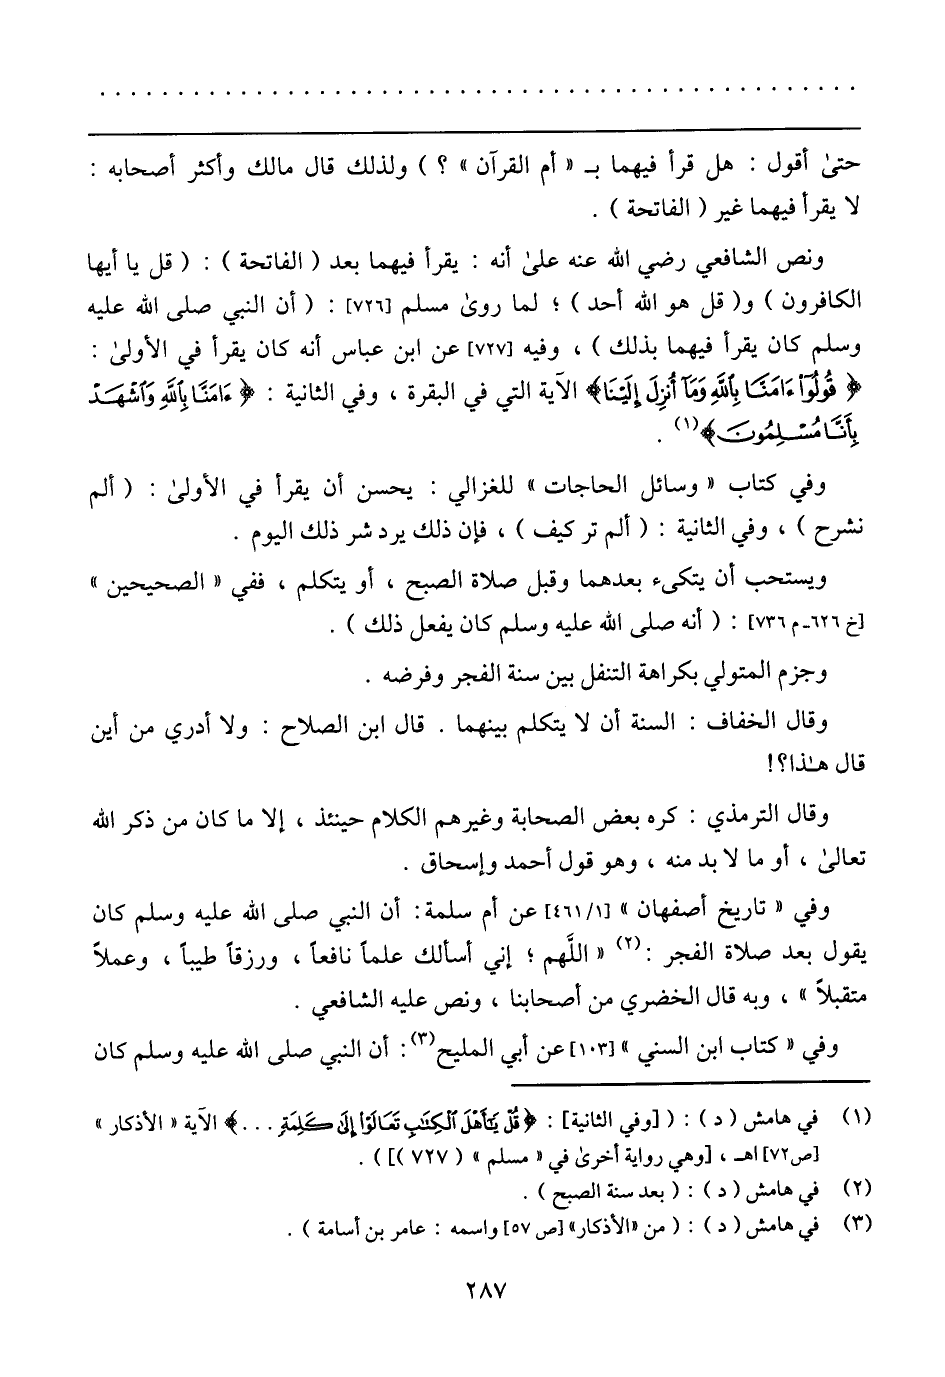 . . . . . . . . . . . . . . . . . . . . . . . . . . . . . . . . . . . . . . . . . . . . . . . . .
حتىٰ أقول : هل قرأ فيهما بـ « أم القرآن » ؟ ) ولذلك قال مالك وأكثر أصحابه :
لا يقرأ فيهما غير ( الفاتحة ) .
ونص الشافعي رضي الله عنه علىٰ أنه : يقرأ فيهما بعد ( الفاتحة ) : ( قل يا أيها
الكافرون ) و( قل هو الله أحد ) ؛ لما روىٰ مسلم [٧٢٦] : ( أن النبي صلى الله عليه
وسلم كان يقرأ فيهما بذلك ) ، وفيه [٧٢٧] عن ابن عباس أنه كان يقرأ في الأولىٰ :
﴿ قُولُوٓا۟ ءَامَنَّا بِٱللَّهِ وَمَآ أُنزِلَ إِلَيْنَا﴾ الآية التي في البقرة ، وفي الثانية : ﴿ ءَامَنَّا بِٱللَّهِ وَٱشْهَدْ
بِأَنَّا مُسْلِمُونَ﴾(١) .
وفي كتاب « وسائل الحاجات » للغزالي : يحسن أن يقرأ في الأولىٰ : ( ألم
نشرح ) ، وفي الثانية : ( ألم تر كيف ) ، فإن ذلك يرد شر ذلك اليوم .
ويستحب أن يتكىء بعدهما وقبل صلاة الصبح ، أو يتكلم ، ففي « الصحيحين »
[خ ٦٢٦ـ م ٧٣٦] : ( أنه صلى الله عليه وسلم كان يفعل ذلك ) .
وجزم المتولي بكراهة التنفل بين سنة الفجر وفرضه .
وقال الخفاف : السنة أن لا يتكلم بينهما . قال ابن الصلاح : ولا أدري من أين
قال هـٰذا؟!
وقال الترمذي : كره بعض الصحابة وغيرهم الكلام حينئذ ، إلا ما كان من ذكر الله
تعالىٰ ، أو ما لا بد منه ، وهو قول أحمد وإسحاق .
وفي « تاريخ أصفهان » [٤٦١/١] عن أم سلمة: أن النبي صلى الله عليه وسلم كان
يقول بعد صلاة الفجر :(٢) « اللَّهم ؛ إني أسألك علماً نافعاً ، ورزقاً طيباً ، وعملاً
متقبلاً » ، وبه قال الخضري من أصحابنا ، ونص عليه الشافعي .
وفي « كتاب ابن السني » [١٠٣] عن أبي المليح(٣): أن النبي صلى الله عليه وسلم كان
(١) في هامش ( د ) : ( [وفي الثانية] : ﴿ قُلْ يَٰٓأَهْلَ ٱلْكِتَٰبِ تَعَالَوْا۟ إِلَىٰ كَلِمَةٍ . . .﴾ الآية « الأذكار »
[ص٧٢] اهـ ، [وهي رواية أخرىٰ في « مسلم » ( ٧٢٧ )] ) .
(٢) في هامش ( د ) : ( بعد سنة الصبح ) .
(٣) في هامش ( د ) : ( من «الأذكار» [ص ٥٧] واسمه : عامر بن أسامة ) .
٢٨٧